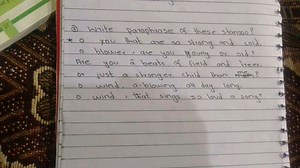 ② Write paraphrase of these stanza?
* O you that are so strong and cold,
O blower, are you young or old?
Are you a beats of field and tree,
or just a stronger child than me?
O wind, a-blowing all day long,
O wind, that sings so loud a song"